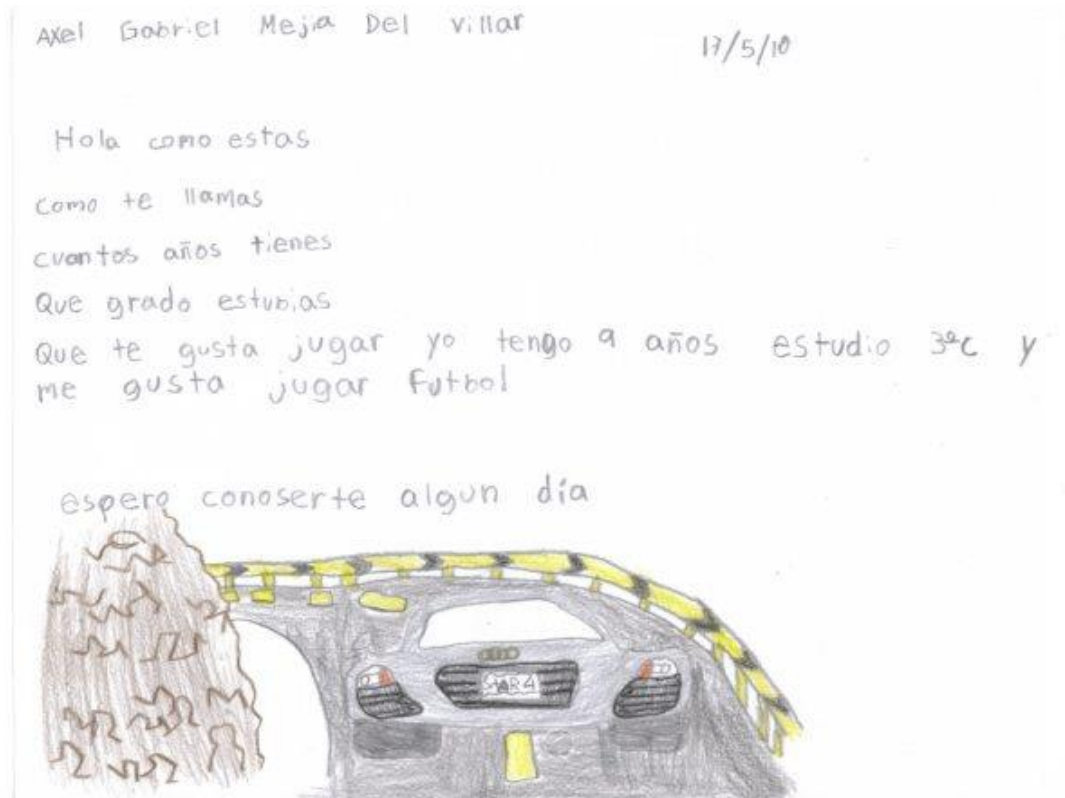 Axel Gabriel Mejia Del Villar
17/5/10
Hola como estas
como te llamas
cuantos años tienes
Que grado estubias
Que te gusta jugar yo tengo 9 años estudio 3ºc y
me gusta jugar Futbol
espero conoserte algun día